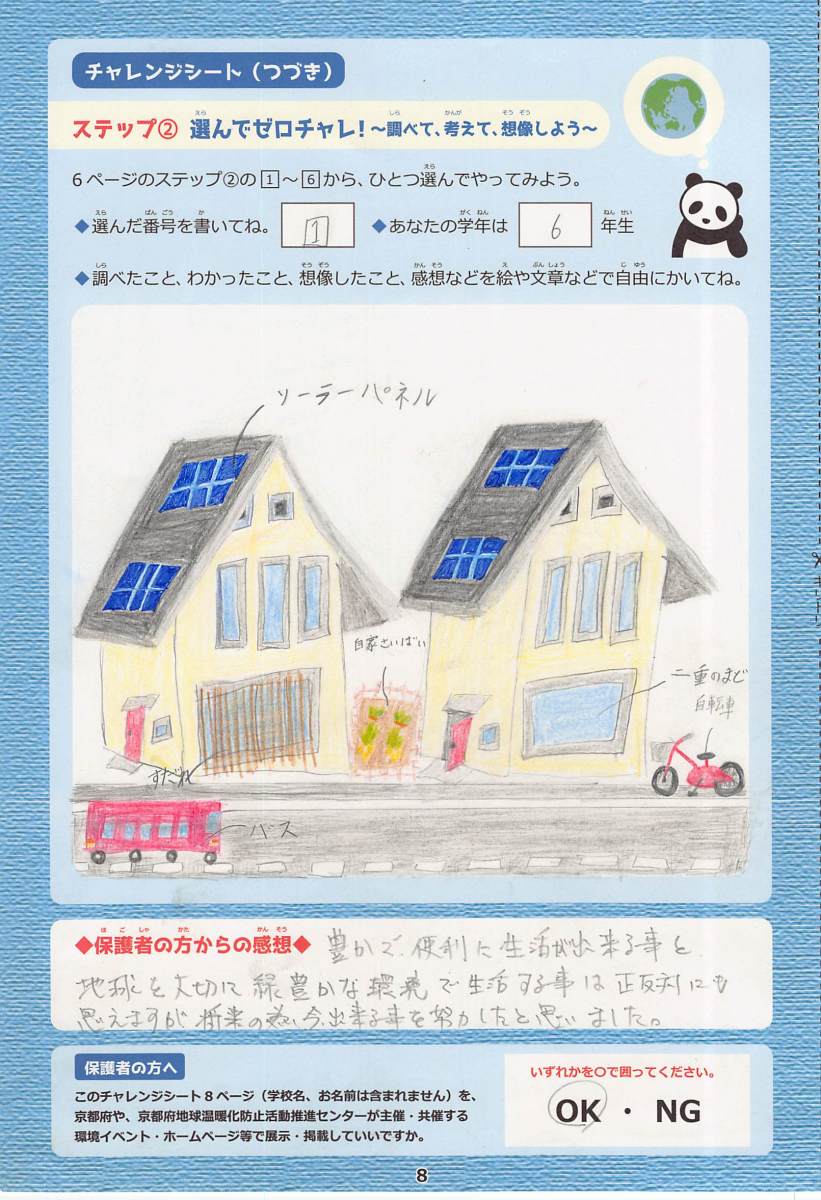 チャレンジシート（つづき）
ステップ② 選んでゼロチャレ！～調べて、考えて、想像しよう～
えら しら かんが そうぞう
6ページのステップ②の1～6から、ひとつ選んでやってみよう。
えら
◆選んだ番号を書いてね。 1 ◆あなたの学年は 6 年生
えら ばんごう か がくねん ねんせい
◆調べたこと、わかったこと、想像したこと、感想などを絵や文章などで自由にかいてね。
しら そうぞう かんそう え ぶんしょう じゆう
ソーラーパネル
自家さいばい
二重のまど
自転車
すだれ
バス
◆保護者の方からの感想◆ 豊かで、便利に生活が出来る事と、
ほごしゃ かた かんそう
地球を大切に緑豊かな環境で生活する事は正反対にも
思えますが将来の為、今、出来る事を努力したと思いました。
保護者の方へ
このチャレンジシート8ページ（学校名、お名前は含まれません）を、
京都府や、京都府地球温暖化防止活動推進センターが主催・共催する
環境イベント・ホームページ等で展示・掲載していいですか。
いずれかを〇で囲ってください。
OK ・ NG
8